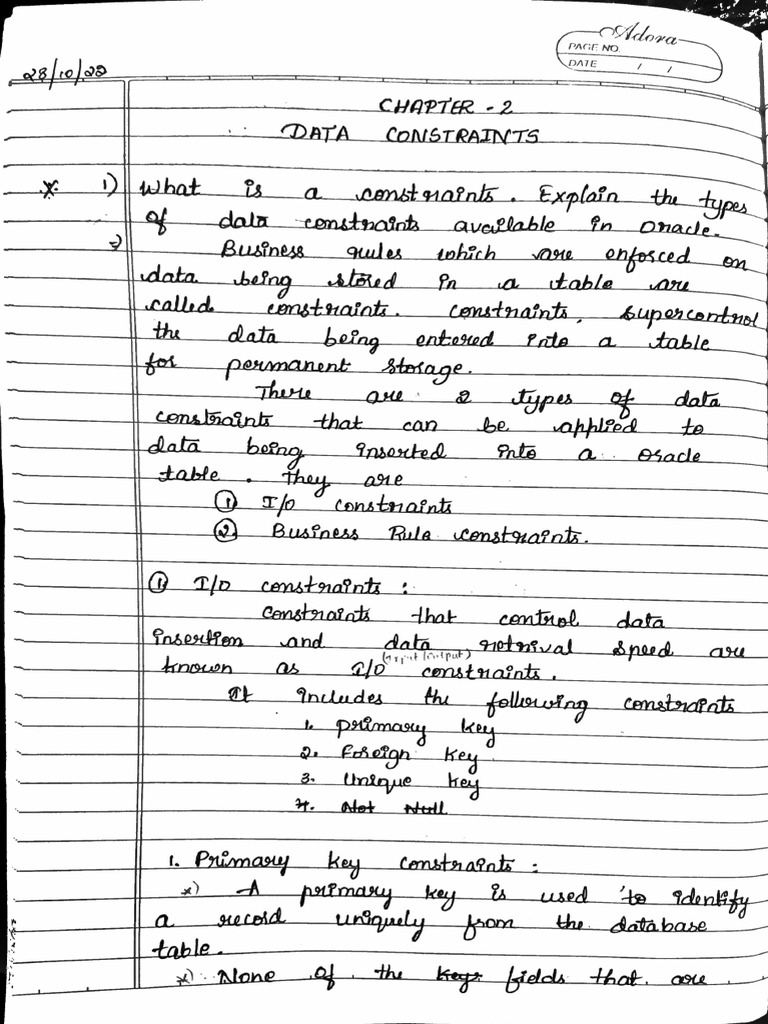 Adora
PAGE NO.
DATE / /
28/10/22
CHAPTER - 2
DATA CONSTRAINTS
* 1) What is a constraints. Explain the types
of data constraints available in oracle.
Business rules which are enforced on
data being stored in a table are
called constraints. constraints, supercontrol
the data being entered into a table
for permanent storage.
There are 2 types of data
constraints that can be applied to
data being inserted into a oracle
table. They are
① I/O constraints
② Business Rule constraints.
① I/O constraints :
Constraints that control data
insertion and data retrival speed are
(input/output)
known as I/O constraints.
It includes the following constraints
1. primary key
2. Foreign key
3. Unique key
4. Not Null
1. Primary key constraints :
*) A primary key is used to identify
a record uniquely from the database
table.
*) None of the keys fields that are